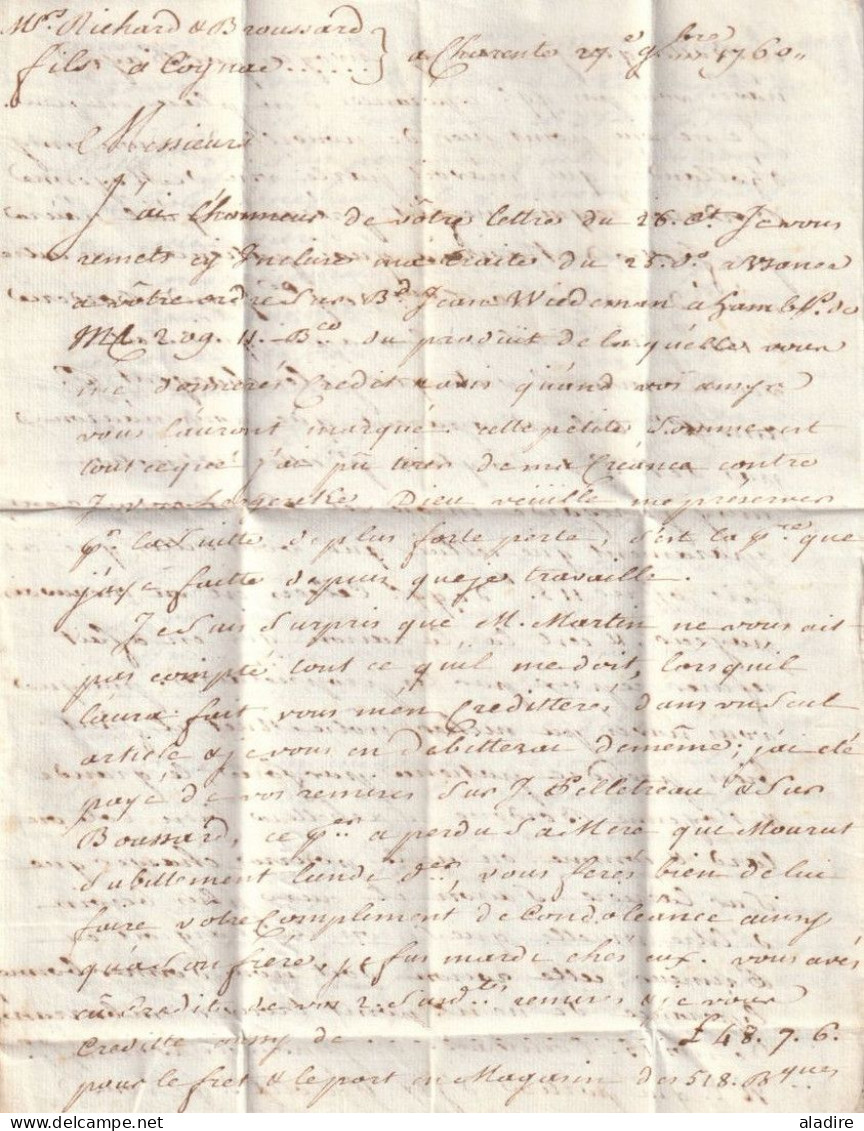 Mrs. Richard & Broussard
fils à Cognac . . . . . } a Charente 27.e 9bre 1760,,
Messieurs
J'ai l'honneur de vôtre lettre du 26. ct. Je vous
remets cy Incluse ma traitte du 25. do. a usance
a vôtre ordre sur Bd. Jean Wiedeman à hambg. de
ML. 209. 11. Bco. du produit de laquélle vous
me donnerés Credit & avis quánd vos amys
vous l'auront marqué. cette petite Somme est
tout ceque j'ai pû tirer de ma Créance contre
Dieu veüille me préserver
pr. la Suitte de plus forte perte, c'est la pre. que
j'aye faitte depuis queje travaille.
Je Suis Surpris que M. Martin ne vous ait
pas compté tout ce quil me doit, lorsquil
laura fait vous m'en Creditterés dans un Seul
article & je vous en debitterai demême; j'ai été
payé de vos remises Sur J. Pelletreau & Sur
Boussard, ce pr. a perdu Sa Mere que Mourut
Subittement lundi der. vous ferés bien de lui
faire votre Compliment de Condoleance ainsy
qu'a Son frere, je fus mardi chés eux. vous avés
Credit de vos 2 Susdtes. remises & je vous
Creditte aussy de £ 48. 7. 6.
pour le fret & le port en Magasin des 518. Bques